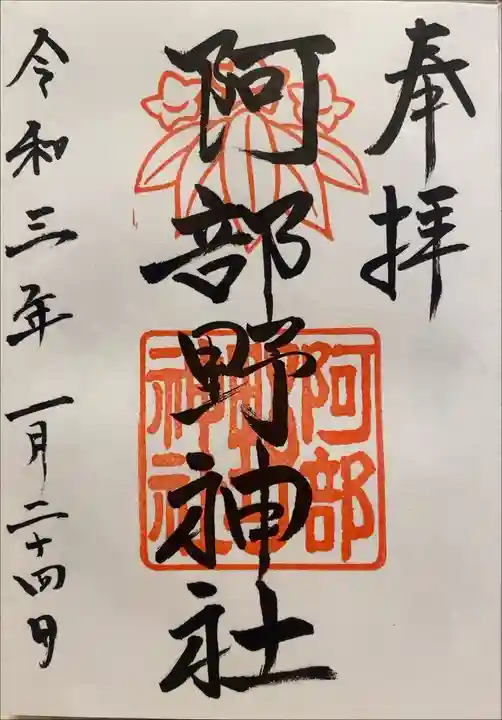 奉拝
阿部野神社
阿部野神社
令和三年 一月二十四日